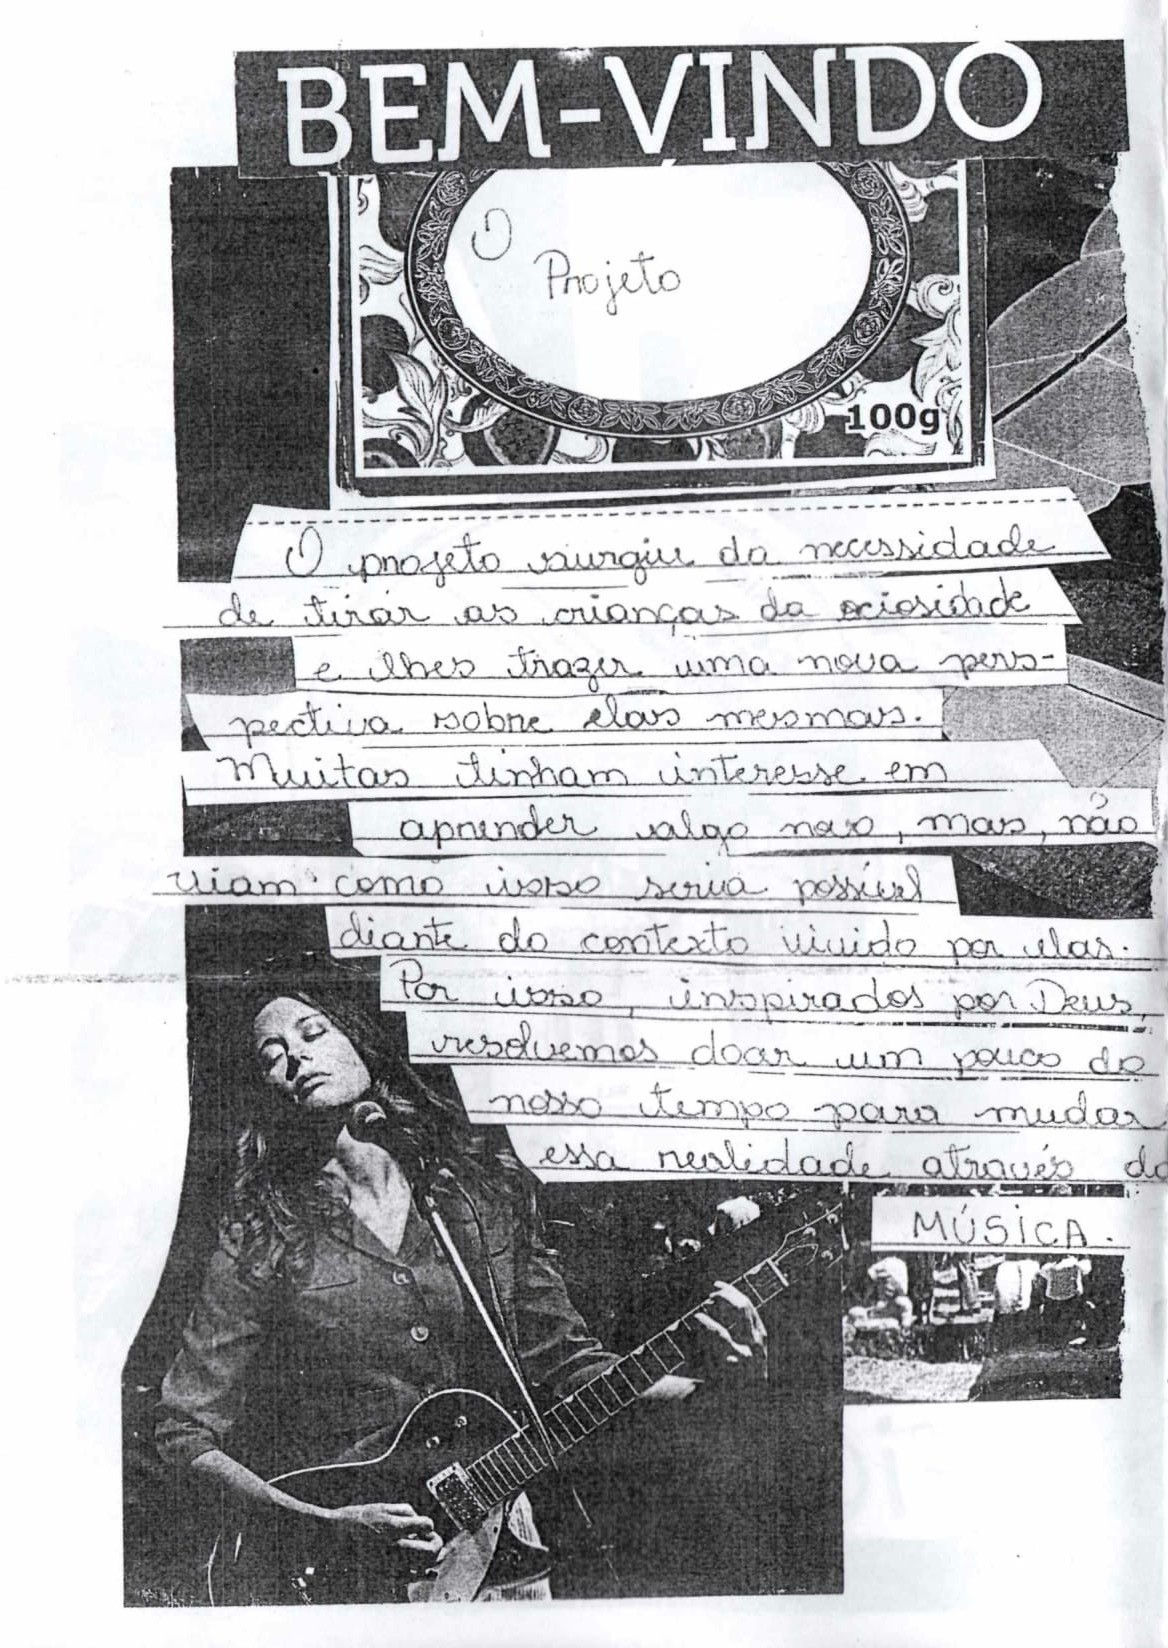 BEM-VINDO
O
Projeto
100g
O projeto surgiu da necessidade
de tirar as crianças da ociosidade
e lhes trazer uma nova pers-
pectiva sobre elas mesmas.
Muitas tinham interesse em
aprender algo novo, mas, não
viam como isso seria possível
diante do contexto vivido por elas.
Por isso, inspirados por Deus,
resolvemos doar um pouco do
nosso tempo para mudar
essa realidade através da
MÚSICA.